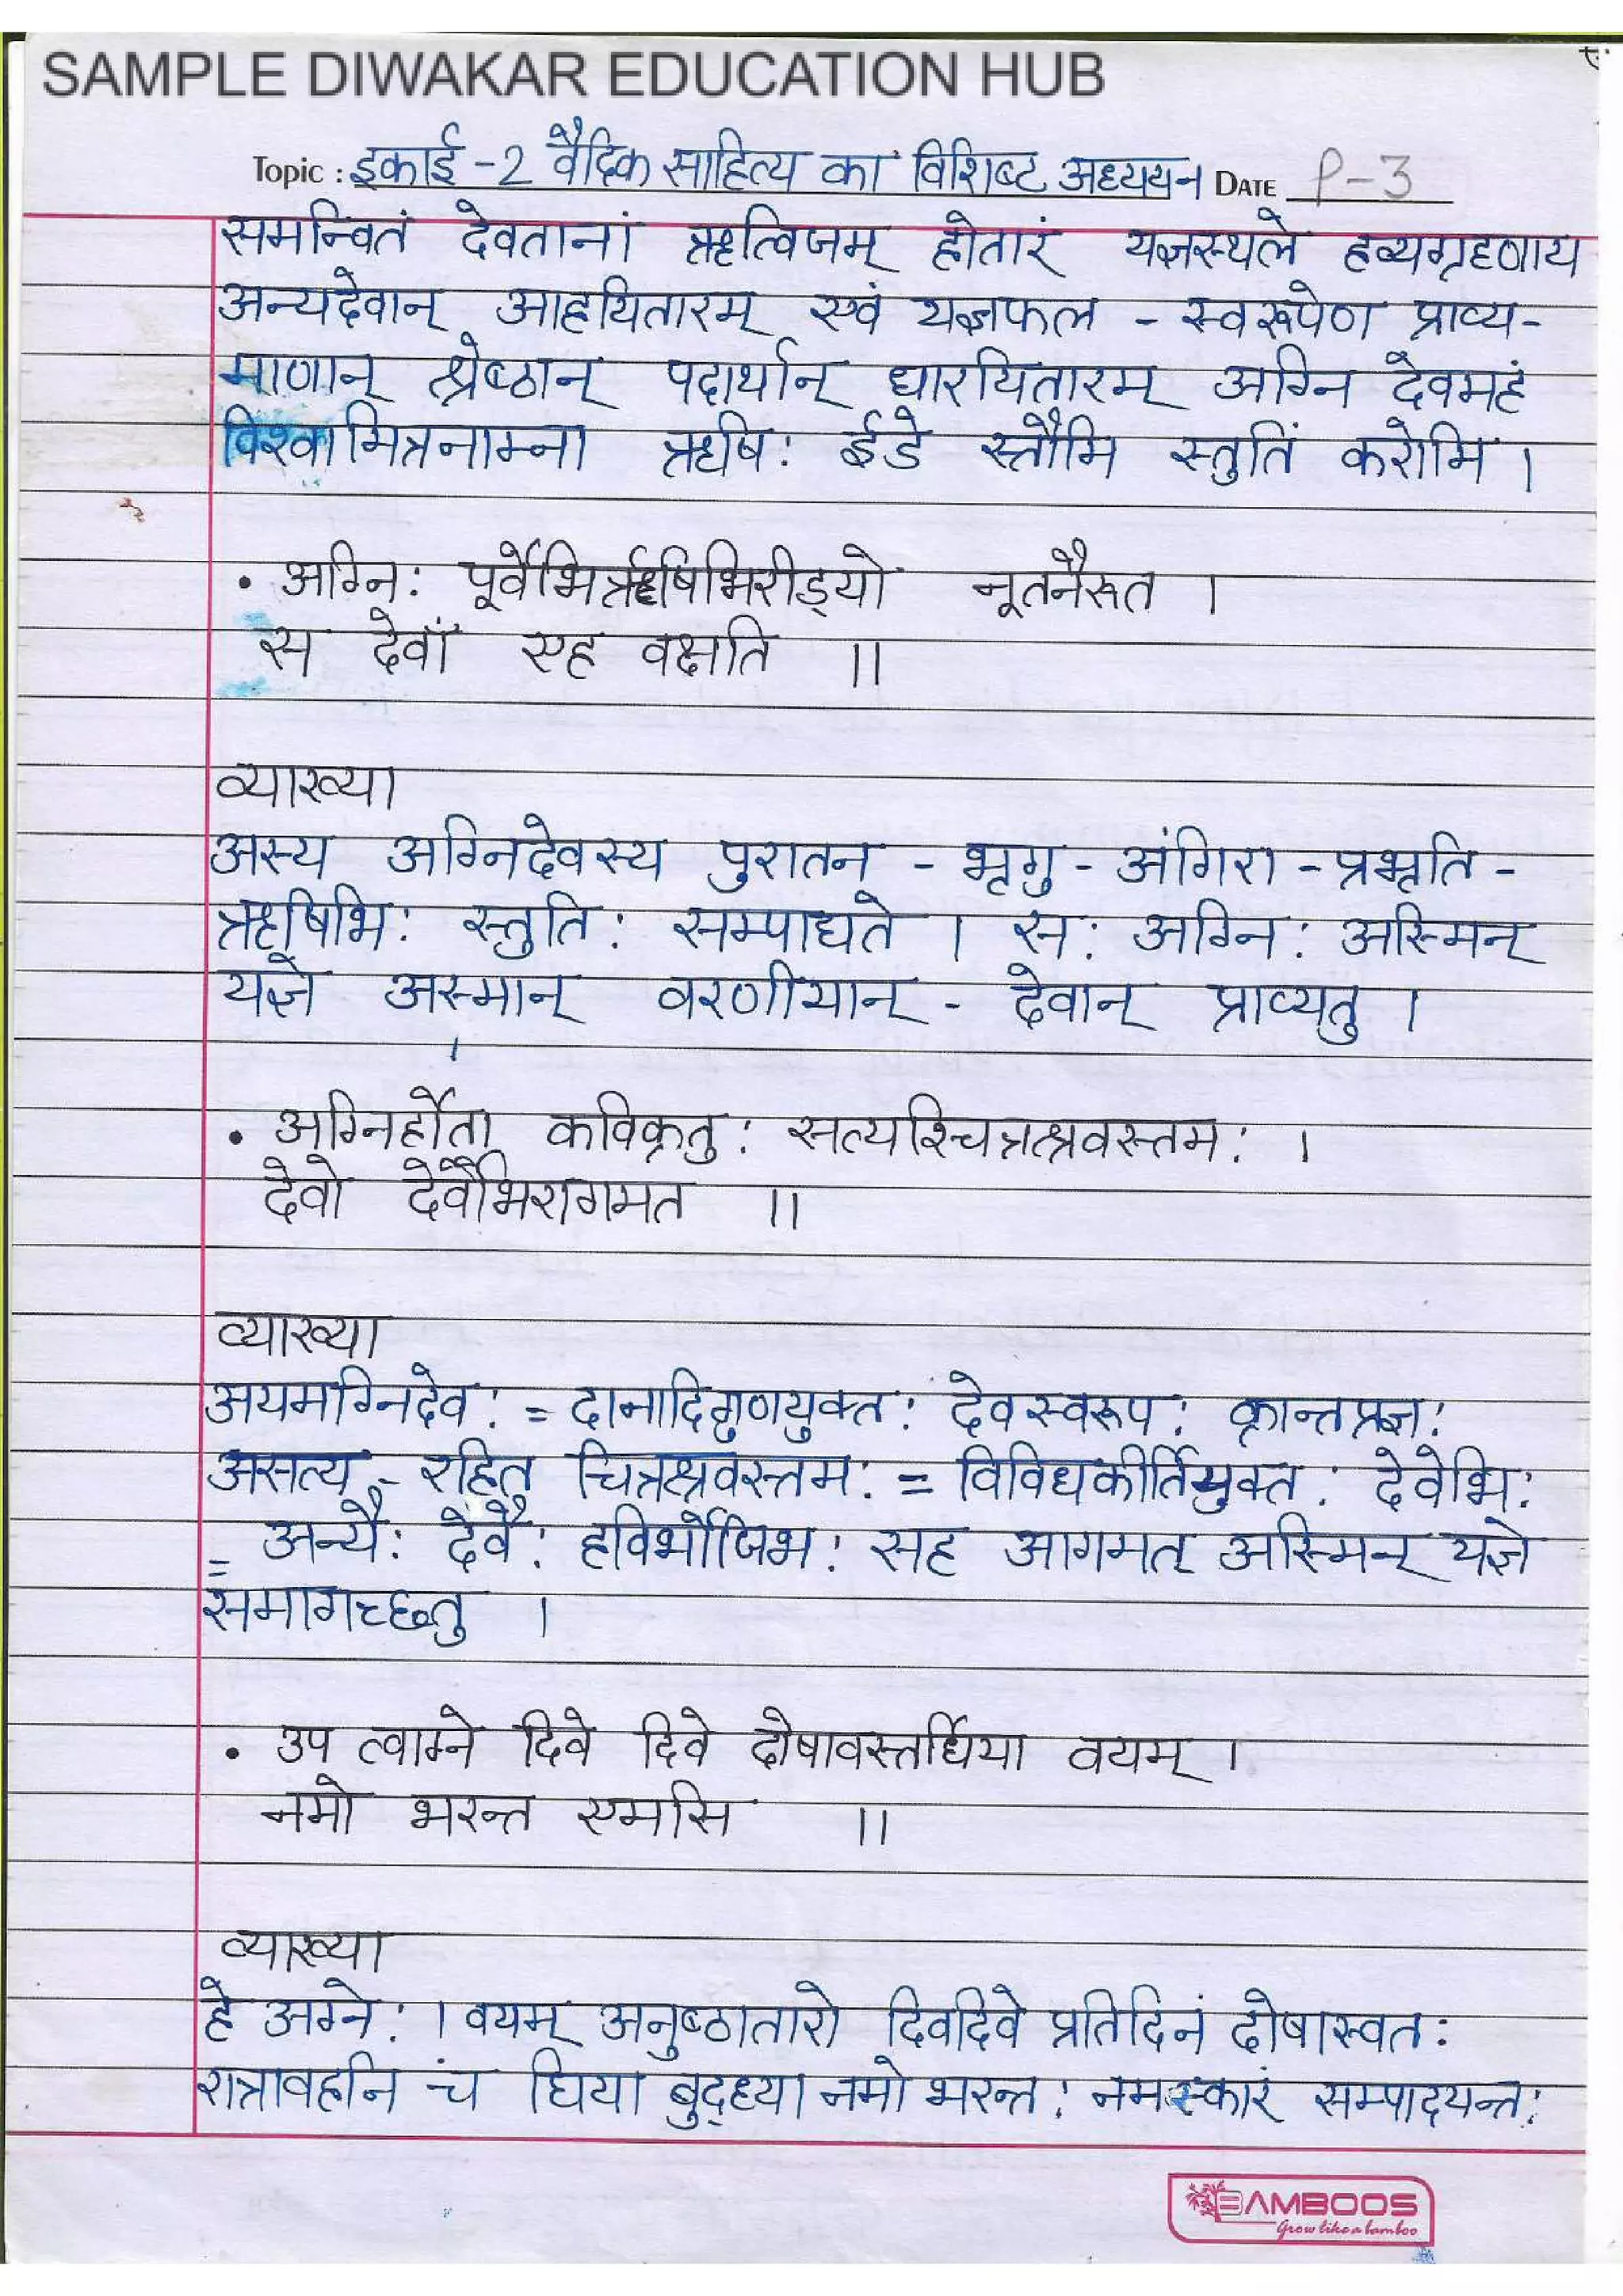 SAMPLE DIWAKAR EDUCATION HUB
Topic : इकाई -2 वैदिक साहित्य का विशिष्ट अध्ययन DATE P-3
समन्वितं देवतानां ऋत्विजम् होतारं यज्ञस्थले हव्यग्रहणाय
अन्यदेवान् आह्वयितारम् एवं यज्ञफल - स्वरूपेण प्राप्य-
माणान् श्रेष्ठान् पदार्थान् धारयितारम् अग्नि देवमहं
विश्वामित्रनाम्ना ऋषि: ईडे स्तौमि स्तुतिं करोमि ।
• अग्नि: पूर्वेभिर्ऋषिभिरीड्यो नूतनैरुत ।
स देवाँ एह वक्षति ॥
व्याख्या
अस्य अग्निदेवस्य पुरातन - भृगु - अंगिरा - प्रभृति -
ऋषिभि: स्तुति: सम्पाद्यते । स: अग्नि: अस्मिन्
यज्ञे अस्मान् वरणीयान् - देवान् प्राप्यतु ।
• अग्निर्होता कविक्रतु: सत्यश्चित्रश्रवस्तम: ।
देवो देवेभिरागमत ॥
व्याख्या
अयमग्निदेव: = दानादिगुणयुक्त: देवस्वरूप: क्रान्तप्रज्ञ:
असत्य - रहित चित्रश्रवस्तम: = विविधकीर्तियुक्त: देवेभि:
= अन्यै: देवै: हविर्भोजिभ: सह आगमत् अस्मिन् यज्ञे
समागच्छतु ।
• उप त्वाग्ने दिवे दिवे दोषावस्तर्धिया वयम् ।
नमो भरन्त एमसि ॥
व्याख्या
हे अग्ने: । वयम् अनुष्ठातारो दिवदिवे प्रतिदिनं दोषास्वत:
रात्रावहनि च धिया बुद्ध्या नमो भरन्त: नमस्कारं सम्पादयन्त:
BAMBOOS
Grow like a bamboo